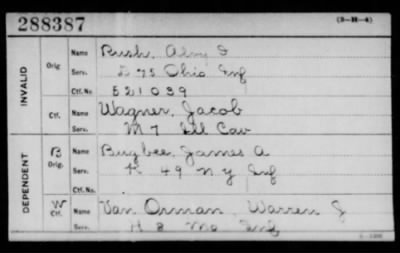 288387
(3-H-4)
INVALID
Orig
Name Bush, Alvy S
Serv. D 75 Ohio Inf
Ctf. No. 521039
Ctf.
Name Wagner, Jacob
Serv. M 7 Ill Cav
DEPENDENT
B
Orig.
Name Bugbee, James A
Serv. K 49 N Y Inf
Ctf. No.
W
Ctf.
Name Van Orman, Warren J
Serv. H 8 Mo Inf